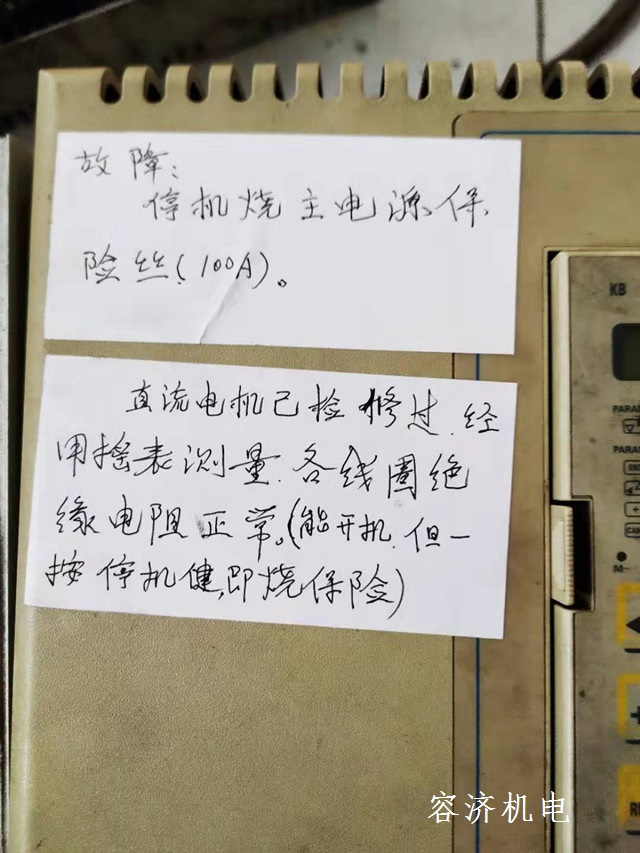 故障:
停机烧主电源保
险丝(100A)。
直流电机已检修过.经
用摇表测量.各线圈绝
缘电阻正常。(能开机.但一
按停机健,即烧保险)
KB
PARA
PARA
M-
容济机电